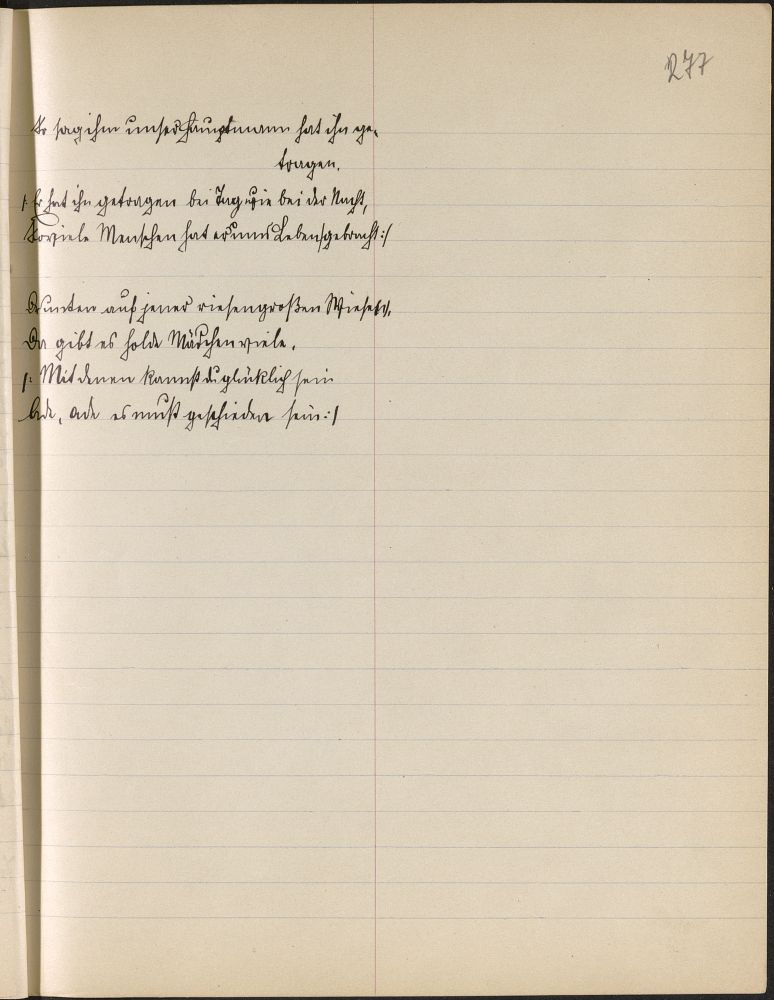 277
So sag ihm unser Hauptmann hat ihn ge-
tragen.
/: Er hat ihn getragen bei Tag wie bei der Nacht,
Soviele Menschen hat er ums Leben gebracht :/
Drunten auf jener riesengroßen Wiese
Da gibt es holde Mädchen viele.
/: Mit denen kannst du glücklich sein
Ade, ade es muß geschieden sein :/